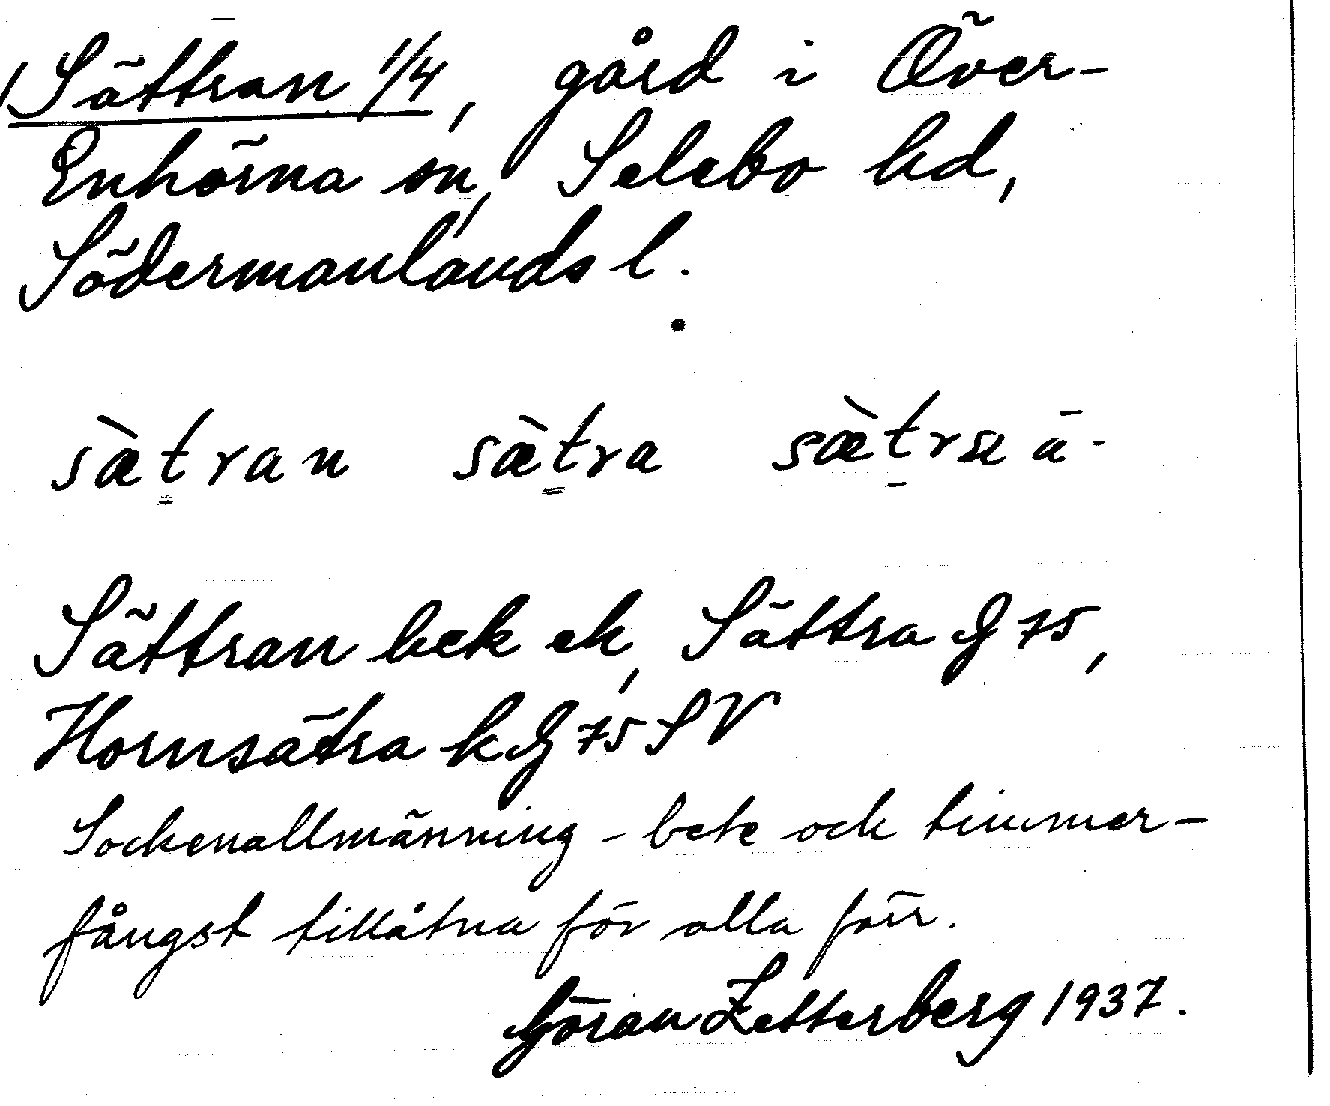 Sättran 1/4, gård i Över-
Enhörna sn, Selebo hd,
Södermanlands l.
sæ̀tran sæ̀tra sæ̀træ ā-
Sättran bek ek, Sättra G 75,
Hornsätra k G 75 SV
Sockenallmänning - bete och timmer-
fångst tillåtna för alla förr.
Göran Zetterberg 1937.